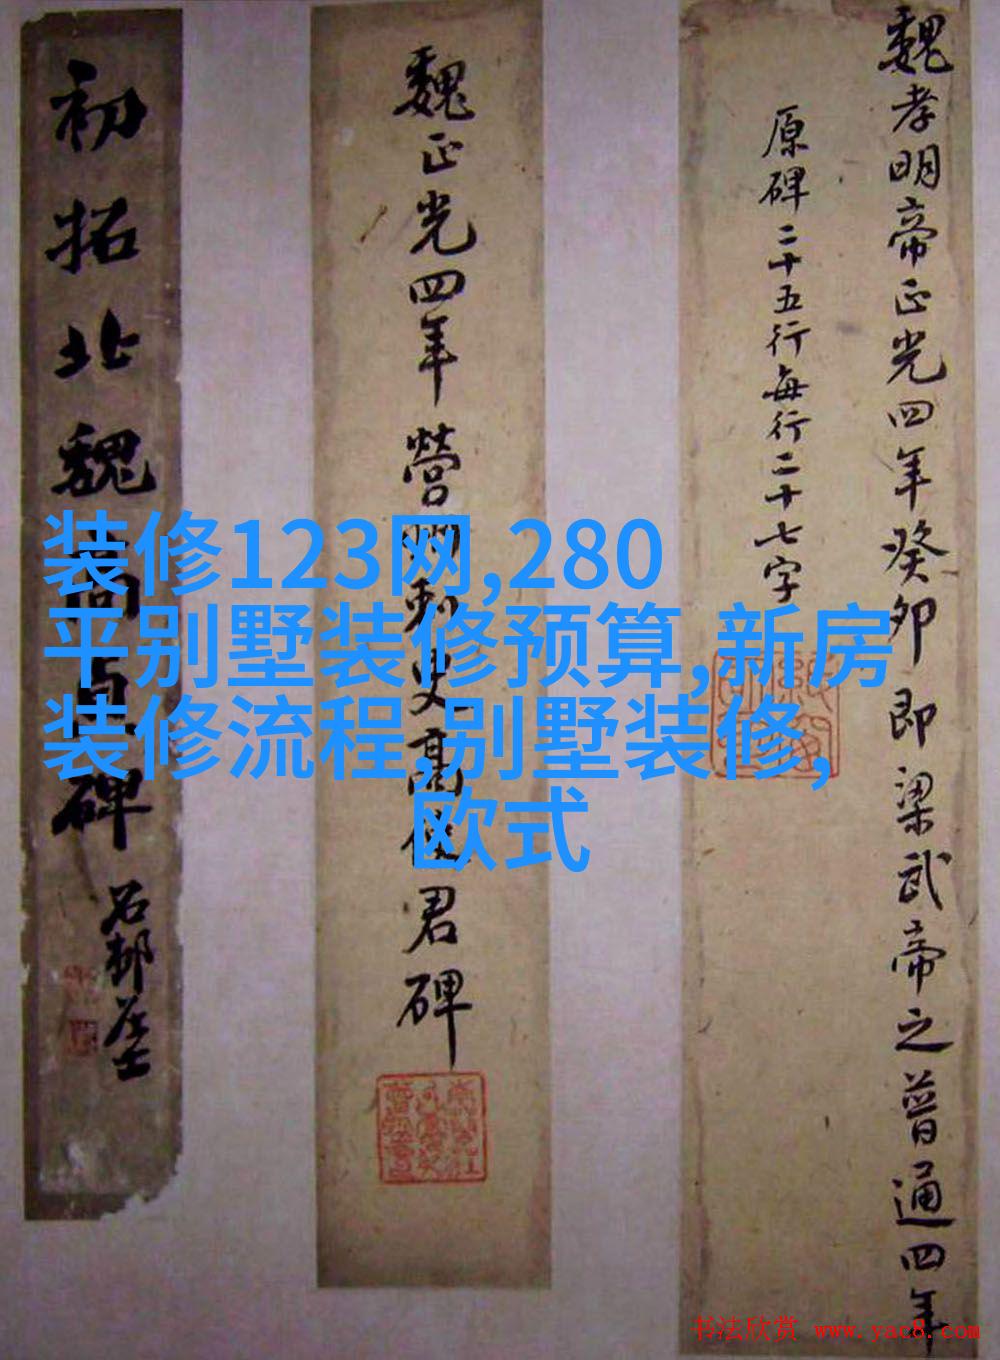 魏孝明帝正光四年癸卯即梁武帝之普通四年
原碑二十五行每行二十七字
魏正光四年營州刺史高使君碑
初拓北魏高貞碑
装修123网,280
平别墅装修预算,新房
装修流程,别墅装修,
欧式
书法欣赏 www.yac8.com